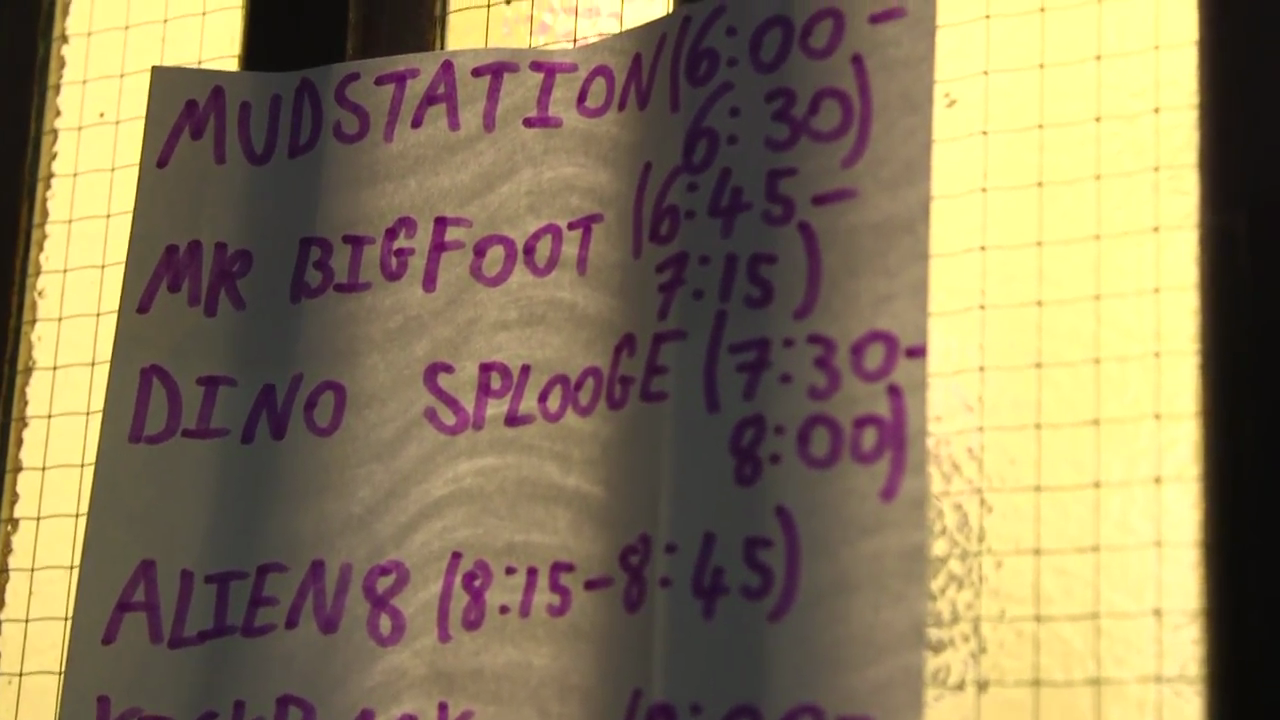 MUDSTATION (6:00-
6:30)
MR BIGFOOT (6:45-
7:15)
DINO SPLOOGE (7:30-
8:00)
ALIEN8 (8:15-8:45)